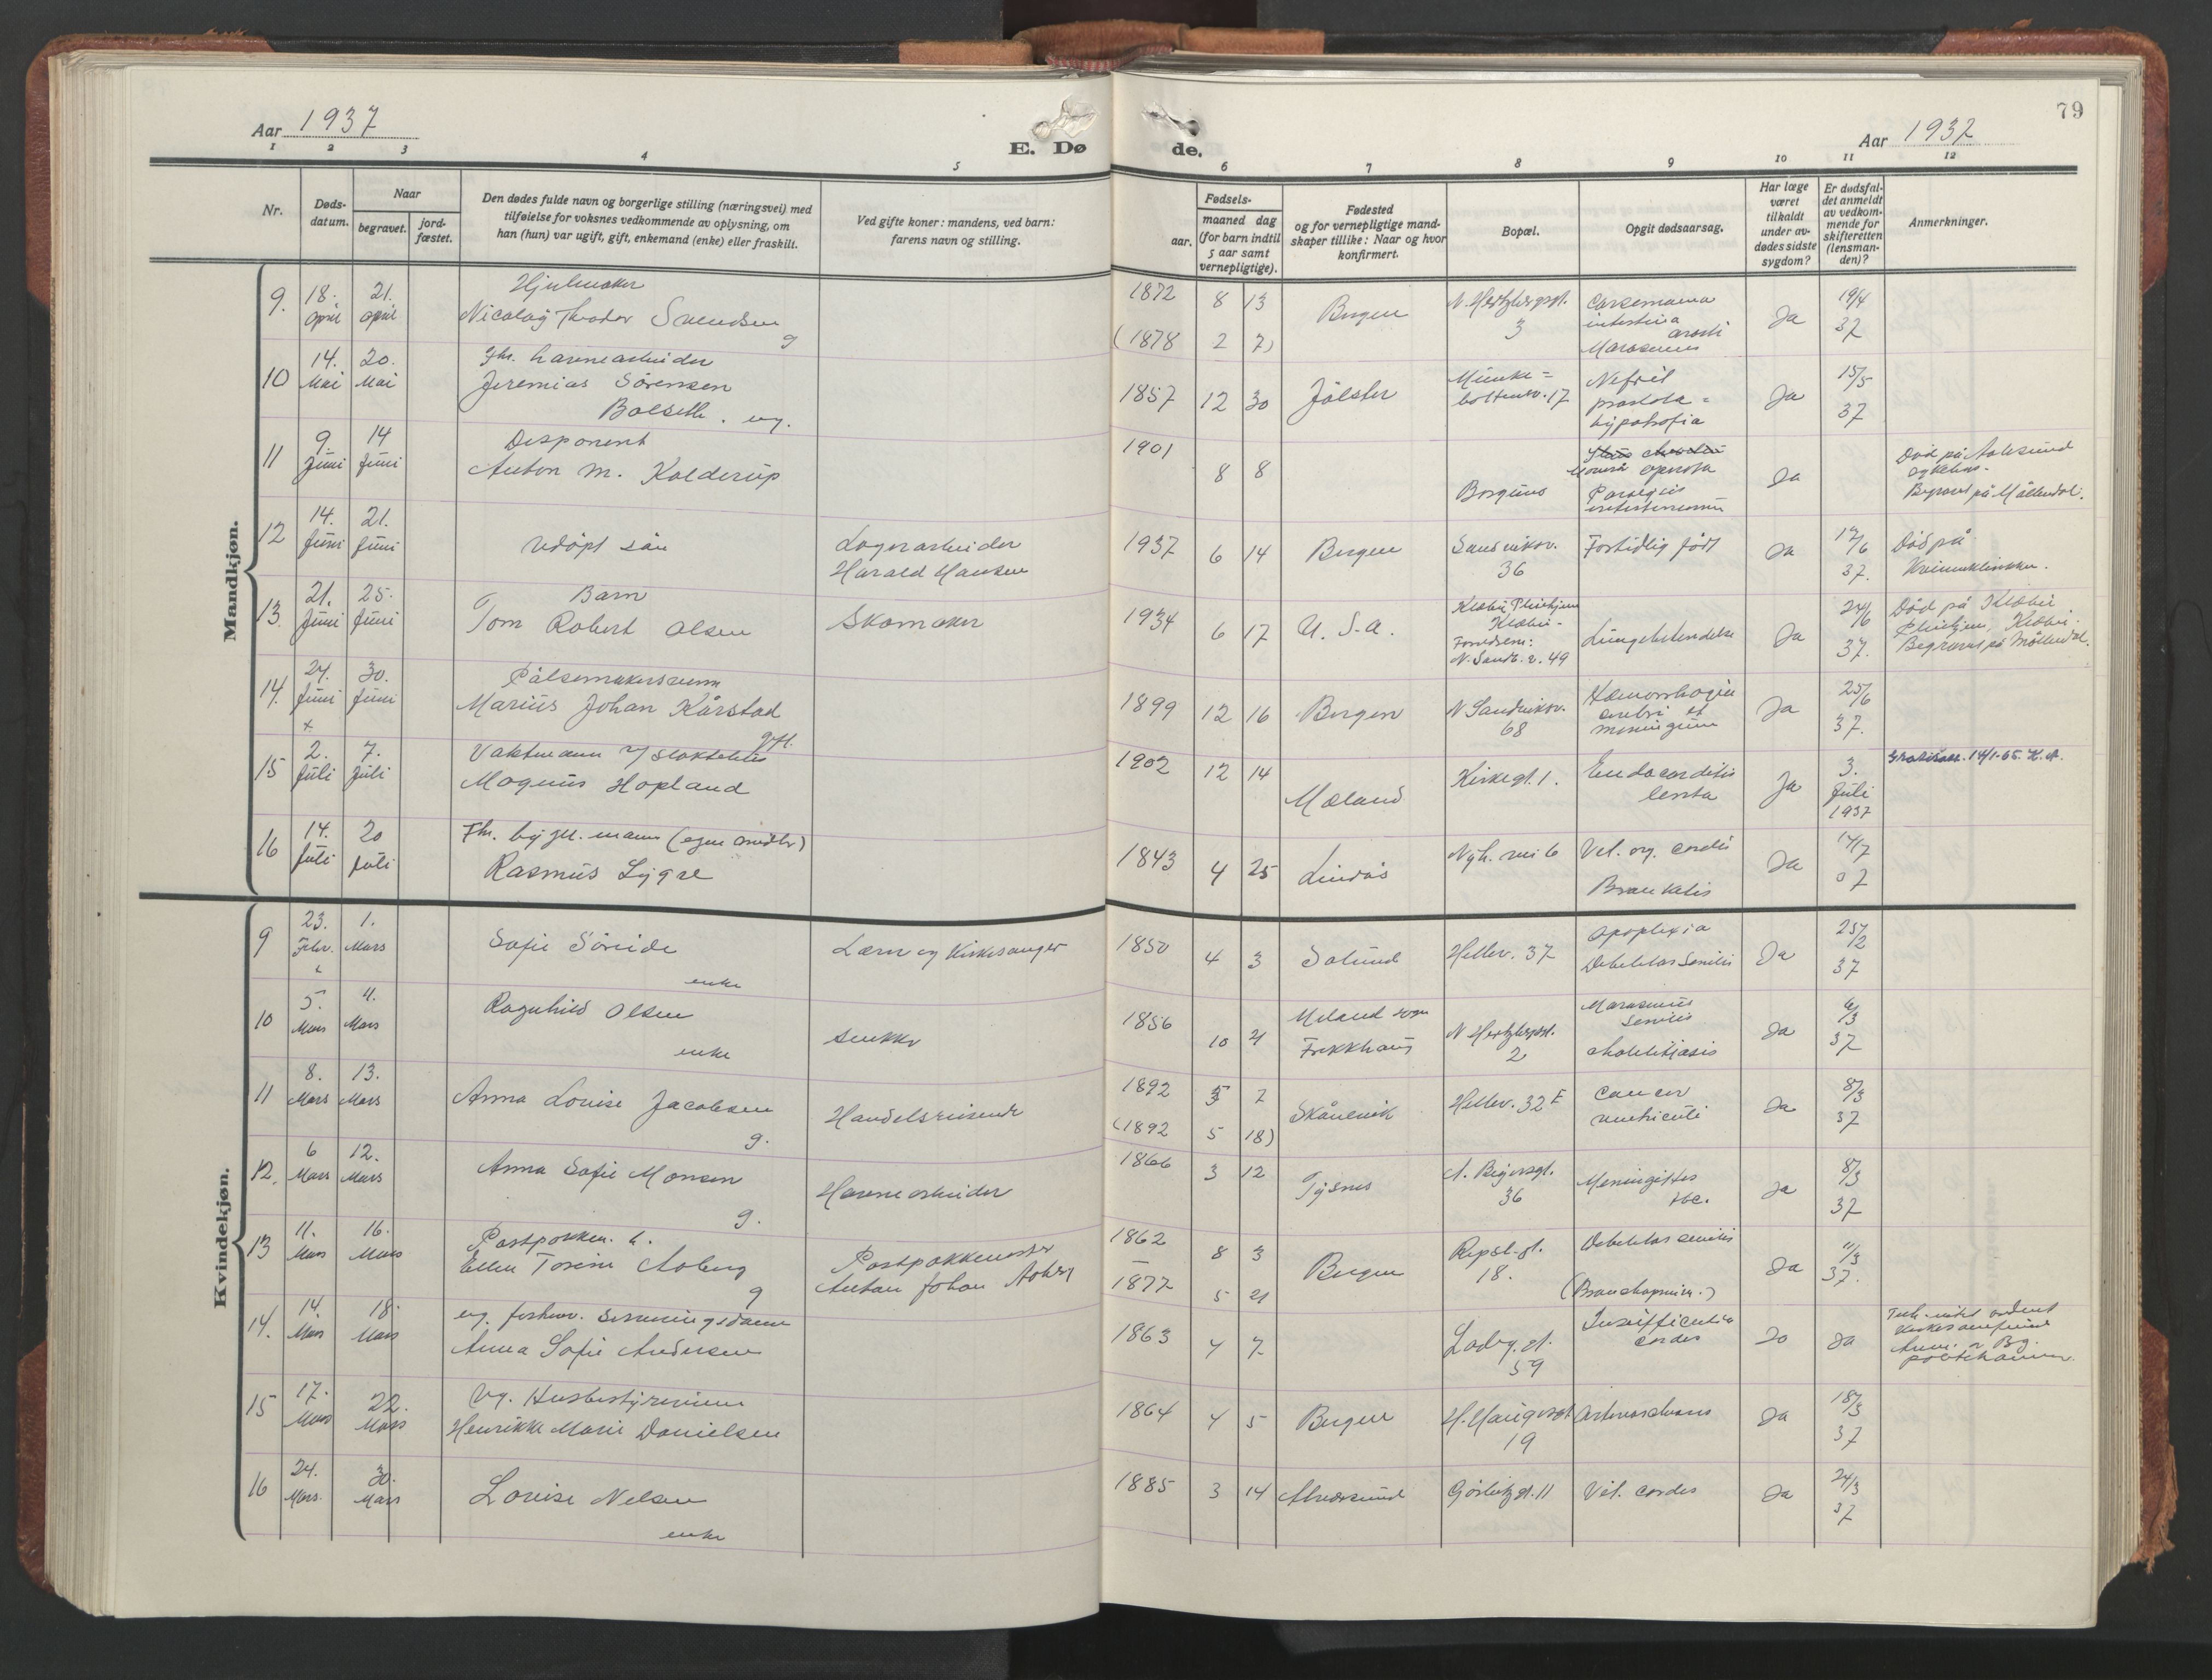 Aar 1937
E. Dø
1 2 3 4 5
Nr.
Døds-
datum.
Naar
begravet.
jord-
fæstet.
Den dødes fulde navn og borgerlige stilling (næringsvei) med
tilføielse for voksnes vedkommende av oplysning, om
han (hun) var ugift, gift, enkemand (enke) eller fraskilt.
Ved gifte koner: mandens, ved barn:
farens navn og stilling.
Mandkjøn.
9. 18. april 21. april
Hjulmaker
Nicolay Theodor Svendsen
g
10 14. Mai 20. Mai
Fhv. havnearbeider
Jeremias Sörensen
Bolseth. ug.
11 9. Juni 14 Juni
Disponent
Anton M. Kalderup
12 14. Juni 21. Juni
Udöpt sön
Lagerarbeider
Harald Hansen
13. 21. Juni 25. Juni
Barn
Tom Robert Olsen
Skomaker
14. 24. Juni 30. Juni
Pölsemakersvenn
Marius Johan Kårstad
gift.
15 2. Juli 7. Juli
Vaktmann v/ slaktehus
Magnus Hopland
16 14. Juli 20 Juli
Fhv. bygn. mann
Rasmus Lygre
Kvindekjøn.
9 23. Febr. 1. Mars
Sofie Söreide
enke
Lærer og Kirkesanger
10 5. Mars 11. Mars
Ragnhild Olsen
enke
snekker
11 8. Mars 13. Mars
Anna Louise Jacobsen
g.
Handelsreisende
12. 6 Mars 12. Mars
Anna Sofie Monsen
g.
Havnearbeider
13 11. Mars 16. Mars
Postpakkm. h.
Ellen Torine Aaberg
g
Postpakkmester
Anton Johan Aaberg
14. 14. Mars 18. Mars
ug. forhenv. serveringsdame
Anna Sofie Andersen
15 17. Mars 22. Mars
Ug. Husbestyrerinne
Henrikke Marie Danielsen
16 24. Mars. 30. Mars
Louise Nelsen
enke
79
de.
Aar 1937
6 7 8 9 10 11 12
aar.
Fødsels-
maaned dag
(for barn indtil
5 aar samt
vernepligtige).
Fødested
og for vernepligtige mand-
skaper tillike: Naar og hvor
konfirmert.
Bopæl.
Opgit dødsaarsag.
Har læge
været
tilkaldt
under av-
dødes sidste
sygdom?
Er dødsfal-
det anmeldt
av vedkom-
mende for
skifteretten
(lensman-
den)?
Anmerkninger.
1872 8 13 Bergen N. Hertzbergsgt. 3
(1878 2 7)
Marasmus
Ja 19/4 37
1857 12 30 Jölster Munke=
bottenv. 17
Nefrit
prostata=
hypotrofia
Ja 15/5 37
1901 8 8 Borgund
Ja
Död på Aalesund
sykehus.
Begravet på Möllendal.
1937 6 14 Bergen Sandviksv.
36
For tidlig födt
Ja 17/6 37.
Död på
Kvinneklinikken.
1934 6 17 U.S.A.
Klæbu Pleiehjem
Klæbu-
N. Sandv. v. 49
Lungebetendelse
Ja 24/6 37.
Död på Klæbu
Pleiehjem, Klæbu.
Begravet på Möllendal.
1899 12 16 Bergen N Sandviksv.
68
Hæmorrhagia
cerebri et
meningium
Ja 25/6 37.
1902 12 14 Mæland Kirkegt. 1.
Endocarditis
lenta
Ja 3. Juli 1937
14/1-65. K.A.
1843 4 25 Lindås Nyh. vei 6
Vit. org. cordis
Bronkitis
Ja 14/7 37
1850 4 3 Solund Hellev. 37
Apoplexia
Debilitas Senilis
Ja 25/2 37
1856 10 4 Meland sogn
Frekkhaug
N Hertzbergsgt.
2
Marasmus
Senilis
cholelitiasis
Ja 6/3 37
1892 3 7 Skånevik Hellev. 32 E
(1892 5 18)
Cancer
ventriculi
Ja 8/3 37
1866 3 12 Tysnes A. Beyersgt.
36
Meningitis
tbc.
Ja 8/3 37
1862 8 3 Bergen Repsl.gt.
18.
1877 5 21
Debilitas senilis
(Bronchopneum.)
Ja 11/3 37.
1863 4 7 Ladeg. gt.
59
Insufficientia
cordis
Ja Ja
1864 4 5 Bergen H. Haugesgt
19
Ja 18/3 37
1885 3 14 Alversund Görbitzgt. 11
Vit. cordis
Ja 24/3 37